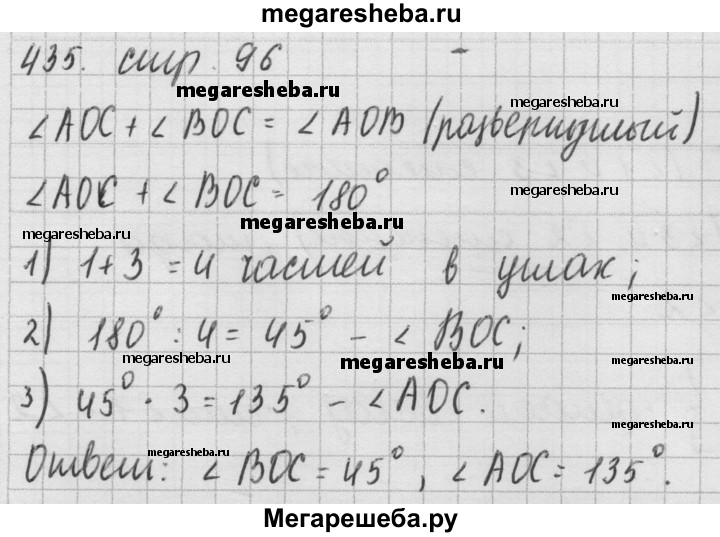 megaresheba.ru
435. стр. 96
megaresheba.ru
megaresheba.ru
∠AOC + ∠BOC = ∠AOB (развернутый)
∠AOC + ∠BOC = 180°
megaresheba.ru
megaresheba.ru
megaresheba.ru
1) 1+3 = 4 частей в углах;
megaresheba.ru
2) 180° : 4 = 45° – ∠BOC;
megaresheba.ru
megaresheba.ru
3) 45° · 3 = 135° – ∠AOC.
megaresheba.ru
megaresheba.ru
Ответ: ∠BOC = 45°, ∠AOC = 135°.
Мегарешеба.ру